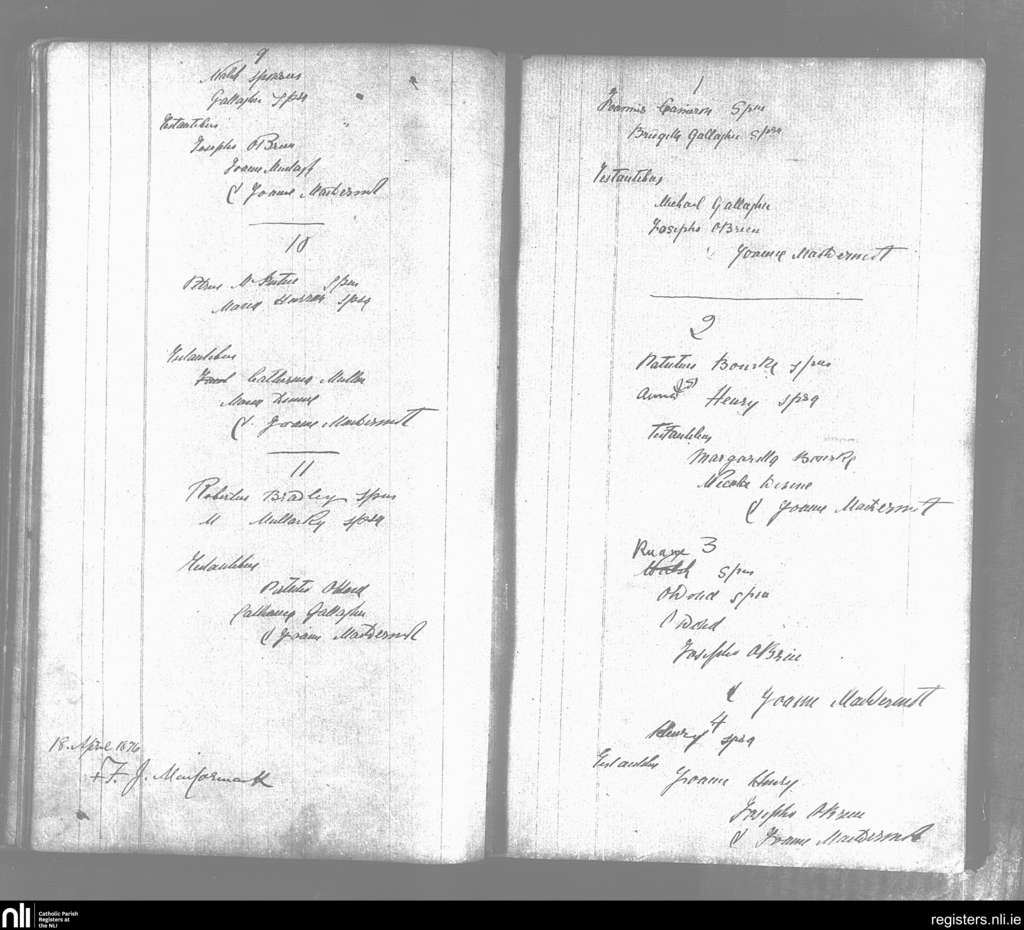 9
Walsh sponsus
Gallagher spsa
Testantibus
Josepho O'Brien
Joanne
& Joanne MacDermott
10
Petrus spus
Maria spsa
Testantibus
Catherina
Maria
& Joanne MacDermott
11
Robertus Bradley spus
M Mullarky spsa
Testantibus
O'Dowd
Catharina Gallagher
& Joanne MacDermott
18. April 1876
+ F. J. MacCormack
1
Joannis Cameron Spus
Brigitta Gallagher spsa
Testantibus
Michael Gallagher
Josepho O'Brien
Joanne MacDermott
2
Patritius Bourke spus
Anna Henry spsa
Testantibus
Margaretta Bourke
& Joanne MacDermott
Ruane 3
Walsh spus
O'Dowd spsa
Dowd
Josepho O'Brien
& Joanne MacDermott
4
Henry spsa
Testantibus
Joanne Henry
Josepho O'Brien
& Joanne MacDermott
nli
Catholic Parish
Registers at
the NLI
registers.nli.ie